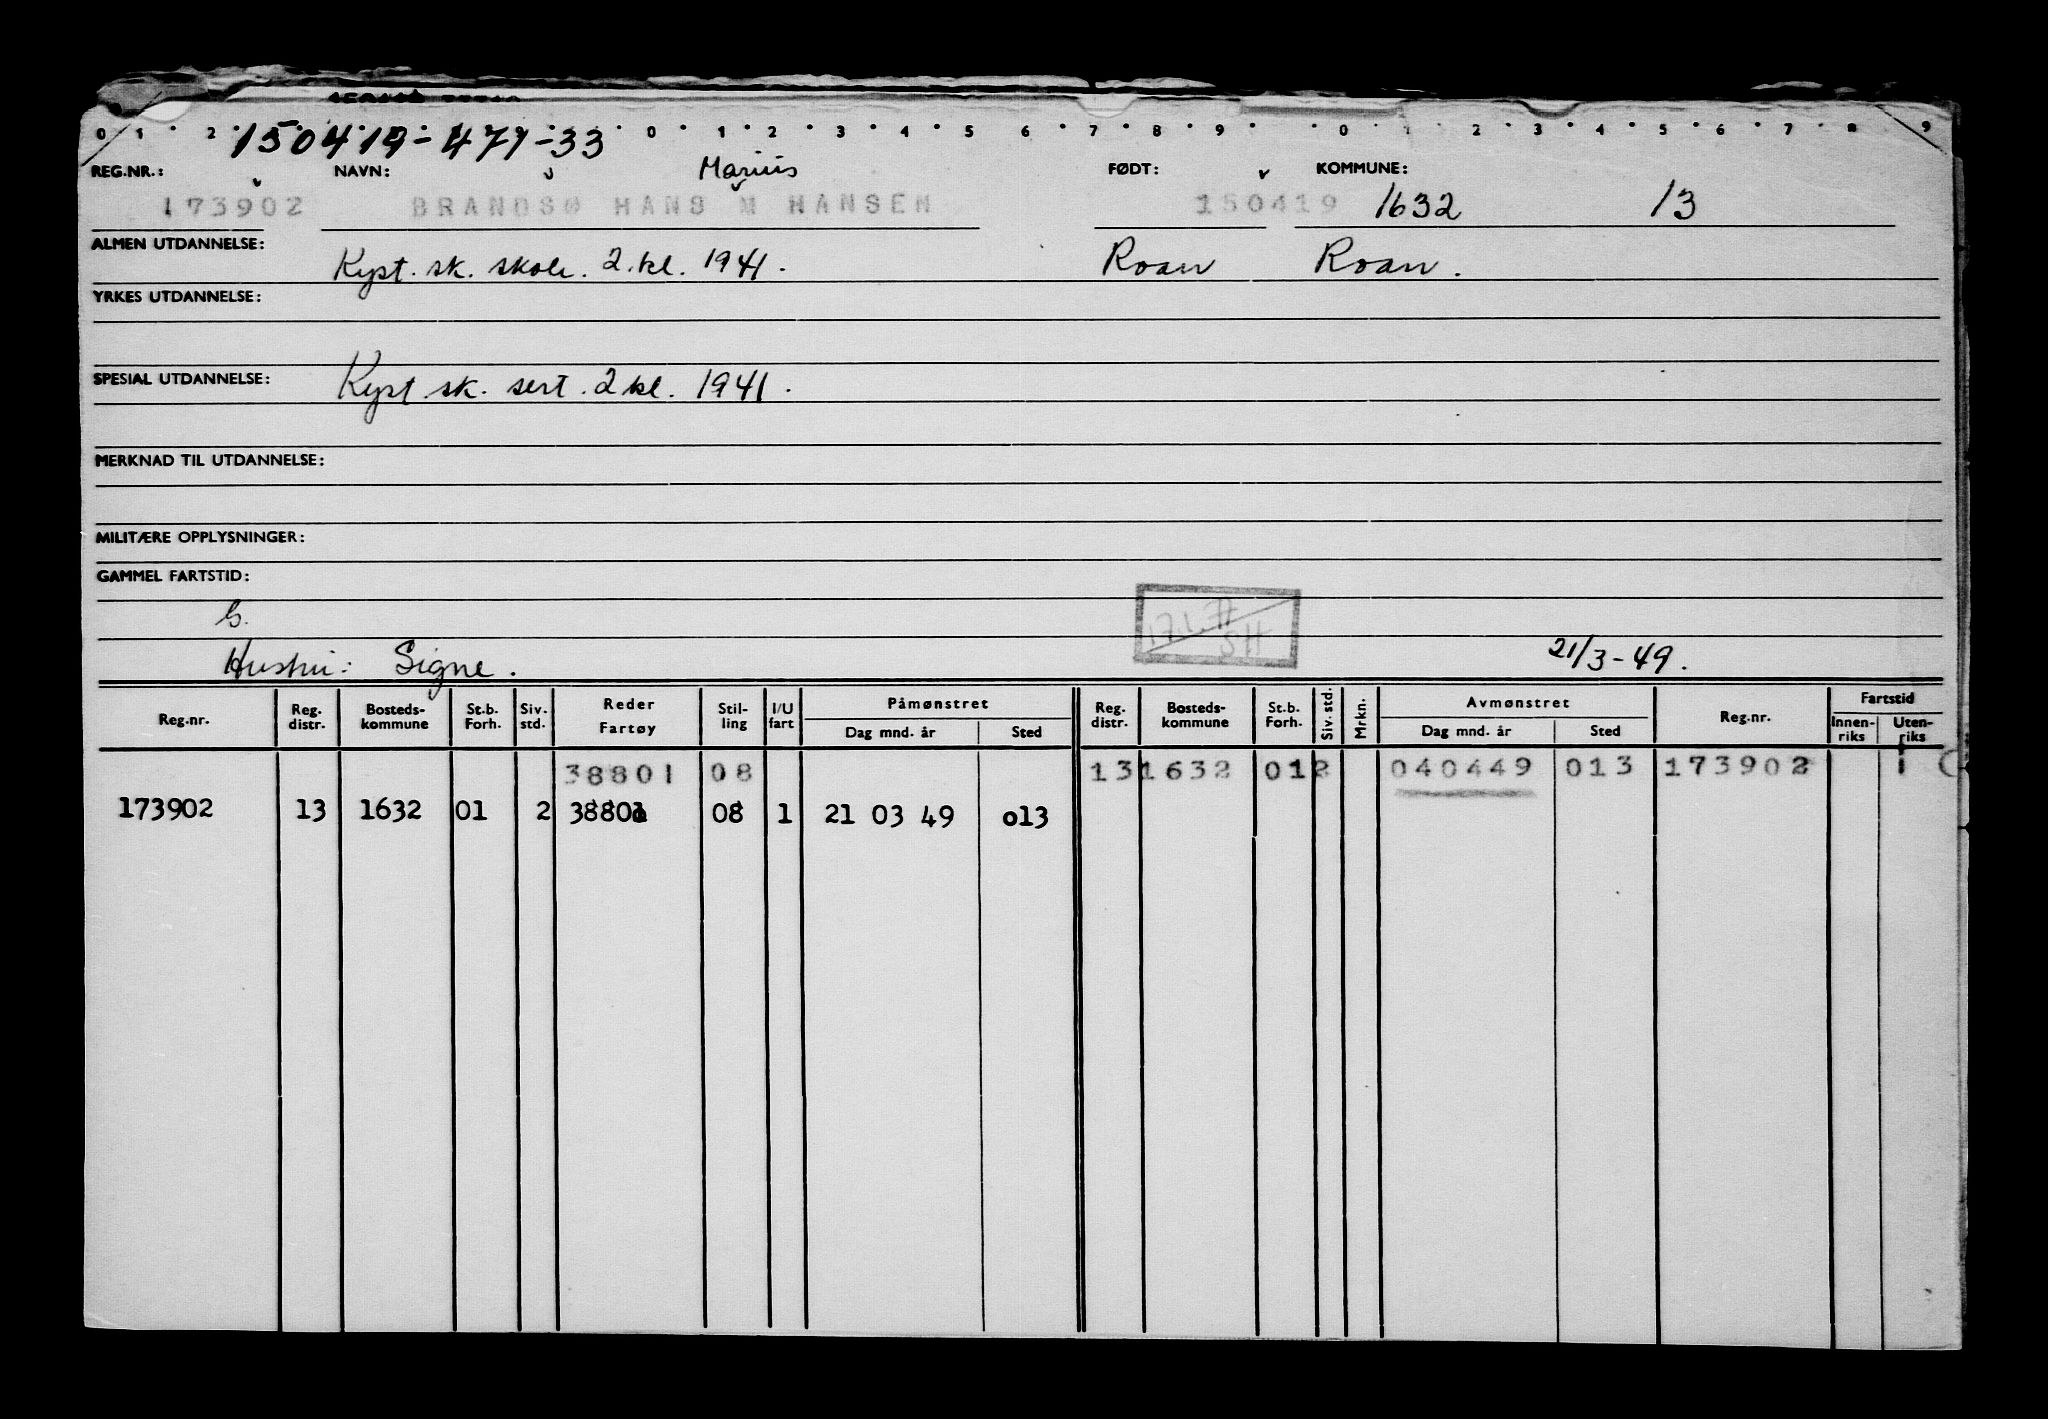 0 1 2 0 1 2 3 4 5 6 7 8 9 0 1 2 3 4 5 6 7 8 9
150419-471-33
REG.NR.: NAVN: Marius FØDT: KOMMUNE:
173902 BRANDSØ HANS M HANSEN 150419 1632 13
ALMEN UTDANNELSE: Kyst. sk. skole. 2. kl. 1941. Roan Roan.
YRKES UTDANNELSE:
SPESIAL UTDANNELSE: Kyst. sk. sert. 2 kl. 1941.
MERKNAD TIL UTDANNELSE:
MILITÆRE OPPLYSNINGER:
GAMMEL FARTSTID:
G. 17.1.77 SH
Hustru: Signe. 21/3-49.
Reg.nr. Reg. distr. Bosteds-kommune St.b. Forh. Siv. std. Reder Fartøy Stil-ling I/U fart Påmønstret Dag mnd. år Sted Reg. distr. Bosteds-kommune St.b. Forh. Siv. std. Mrkn. Avmønstret Dag mnd. år Sted Reg.nr. Fartstid Innen-riks Uten-riks
38801 08 13 1632 01 2 040449 013 173902 1
173902 13 1632 01 2 38801 08 1 21 03 49 o13